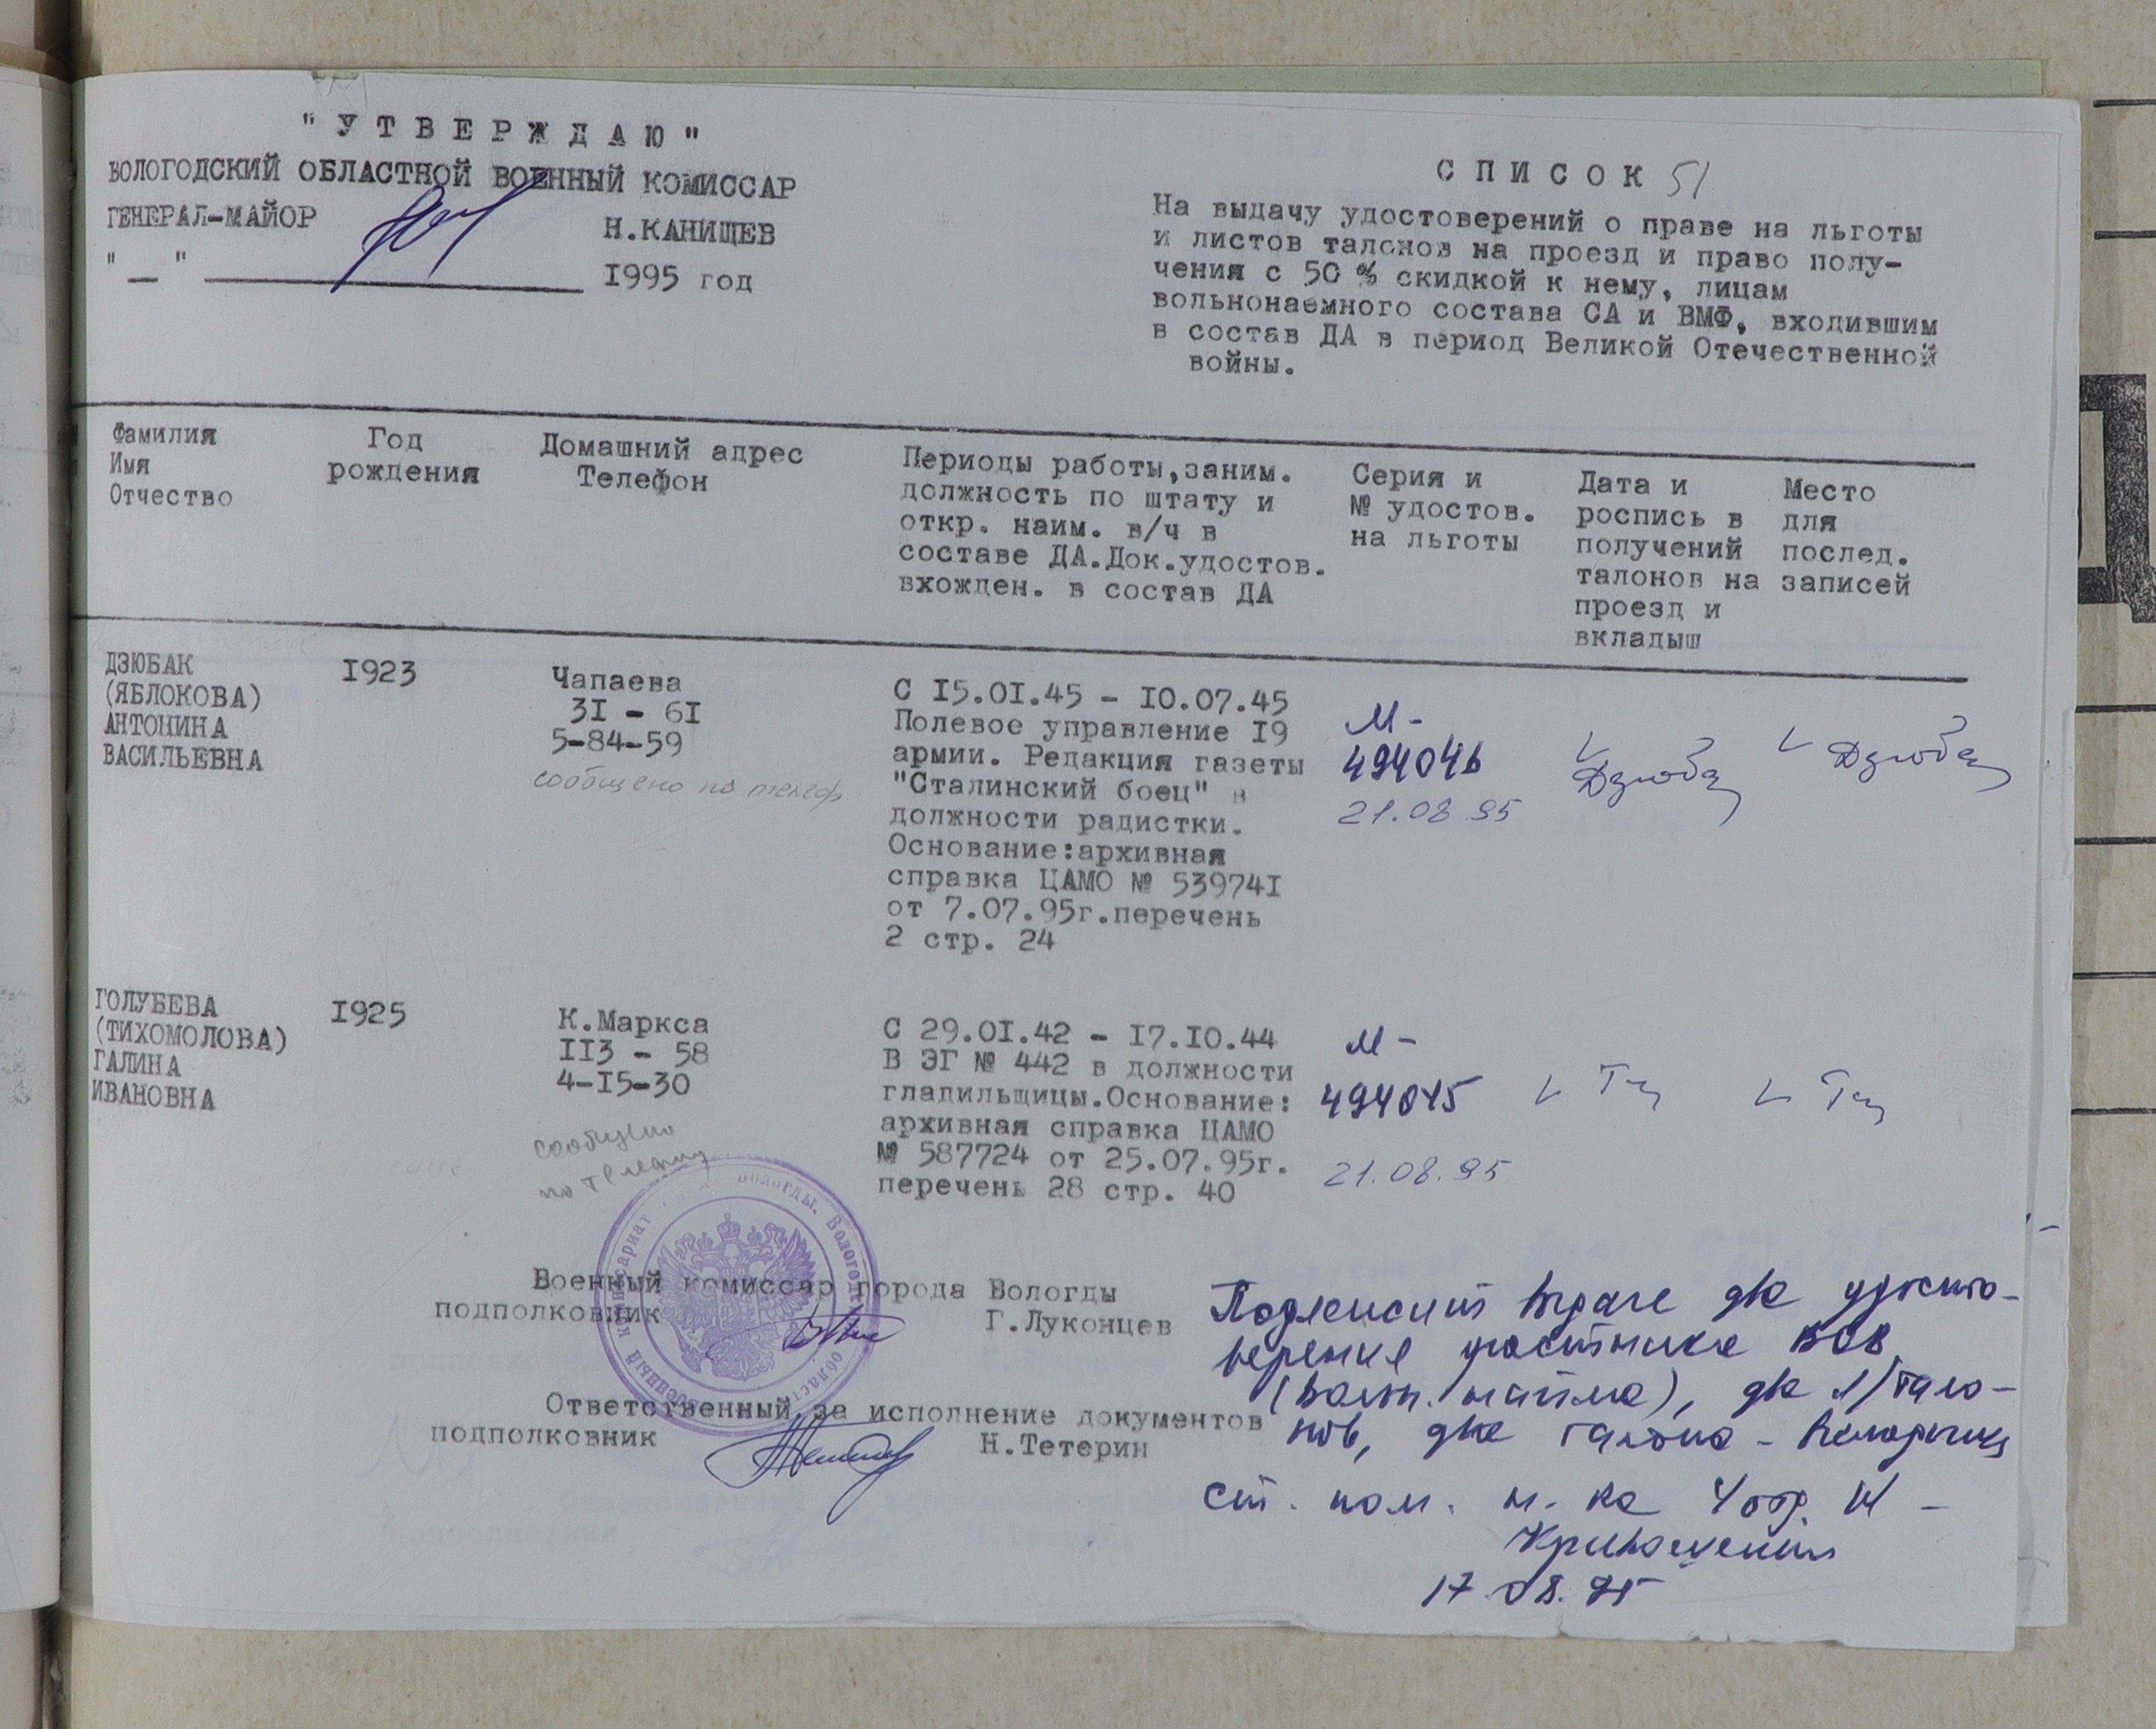 "УТВЕРЖДАЮ"
ВОЛОГОДСКИЙ ОБЛАСТНОЙ ВОЕННЫЙ КОМИССАР
ГЕНЕРАЛ-МАЙОР Н.КАНИЩЕВ
"__" ____________ 1995 год
СПИСОК 51
На выдачу удостоверений о праве на льготы
и листов талонов на проезд и право полу-
чения с 50 % скидкой к нему, лицам
вольнонаемного состава СА и ВМФ, входившим
в состав ДА в период Великой Отечественной
войны.
Фамилия
Имя
Отчество
Год
рождения
Домашний адрес
Телефон
Периоды работы,заним.
должность по штату и
откр. наим. в/ч в
составе ДА.Док.удостов.
вхожден. в состав ДА
Серия и
№ удостов.
на льготы
Дата и
роспись в
получений
талонов на
проезд и
вкладыш
Место
для
послед.
записей
ДЗЮБАК
(ЯБЛОКОВА)
АНТОНИНА
ВАСИЛЬЕВНА
1923
Чапаева
31 - 61
5-84-59
сообщено по телеф
С 15.01.45 - 10.07.45
Полевое управление 19
армии. Редакция газеты
"Сталинский боец" в
должности радистки.
Основание:архивная
справка ЦАМО № 539741
от 7.07.95г.перечень
2 стр. 24
М-
494046
21.08 95
Дзюба
Дзюба
ГОЛУБЕВА
(ТИХОМОЛОВА)
ГАЛИНА
ИВАНОВНА
1925
К.Маркса
113 - 58
4-15-30
сообщено
по
С 29.01.42 - 17.10.44
В ЭГ № 442 в должности
гладильщицы.Основание:
архивная справка ЦАМО
№ 587724 от 25.07.95г.
перечень 28 стр. 40
М-
494045
21.08.95
Военный комиссар города Вологды
подполковник Г.Луконцев
Ответственный за исполнение документов
подполковник Н.Тетерин
Подлежит выдаче два удосто-
верения участника ВОВ
(вольн. найма), два л/тало-
нов, два талона -
ст. пом. н-ка 4 отд.
17.08.95